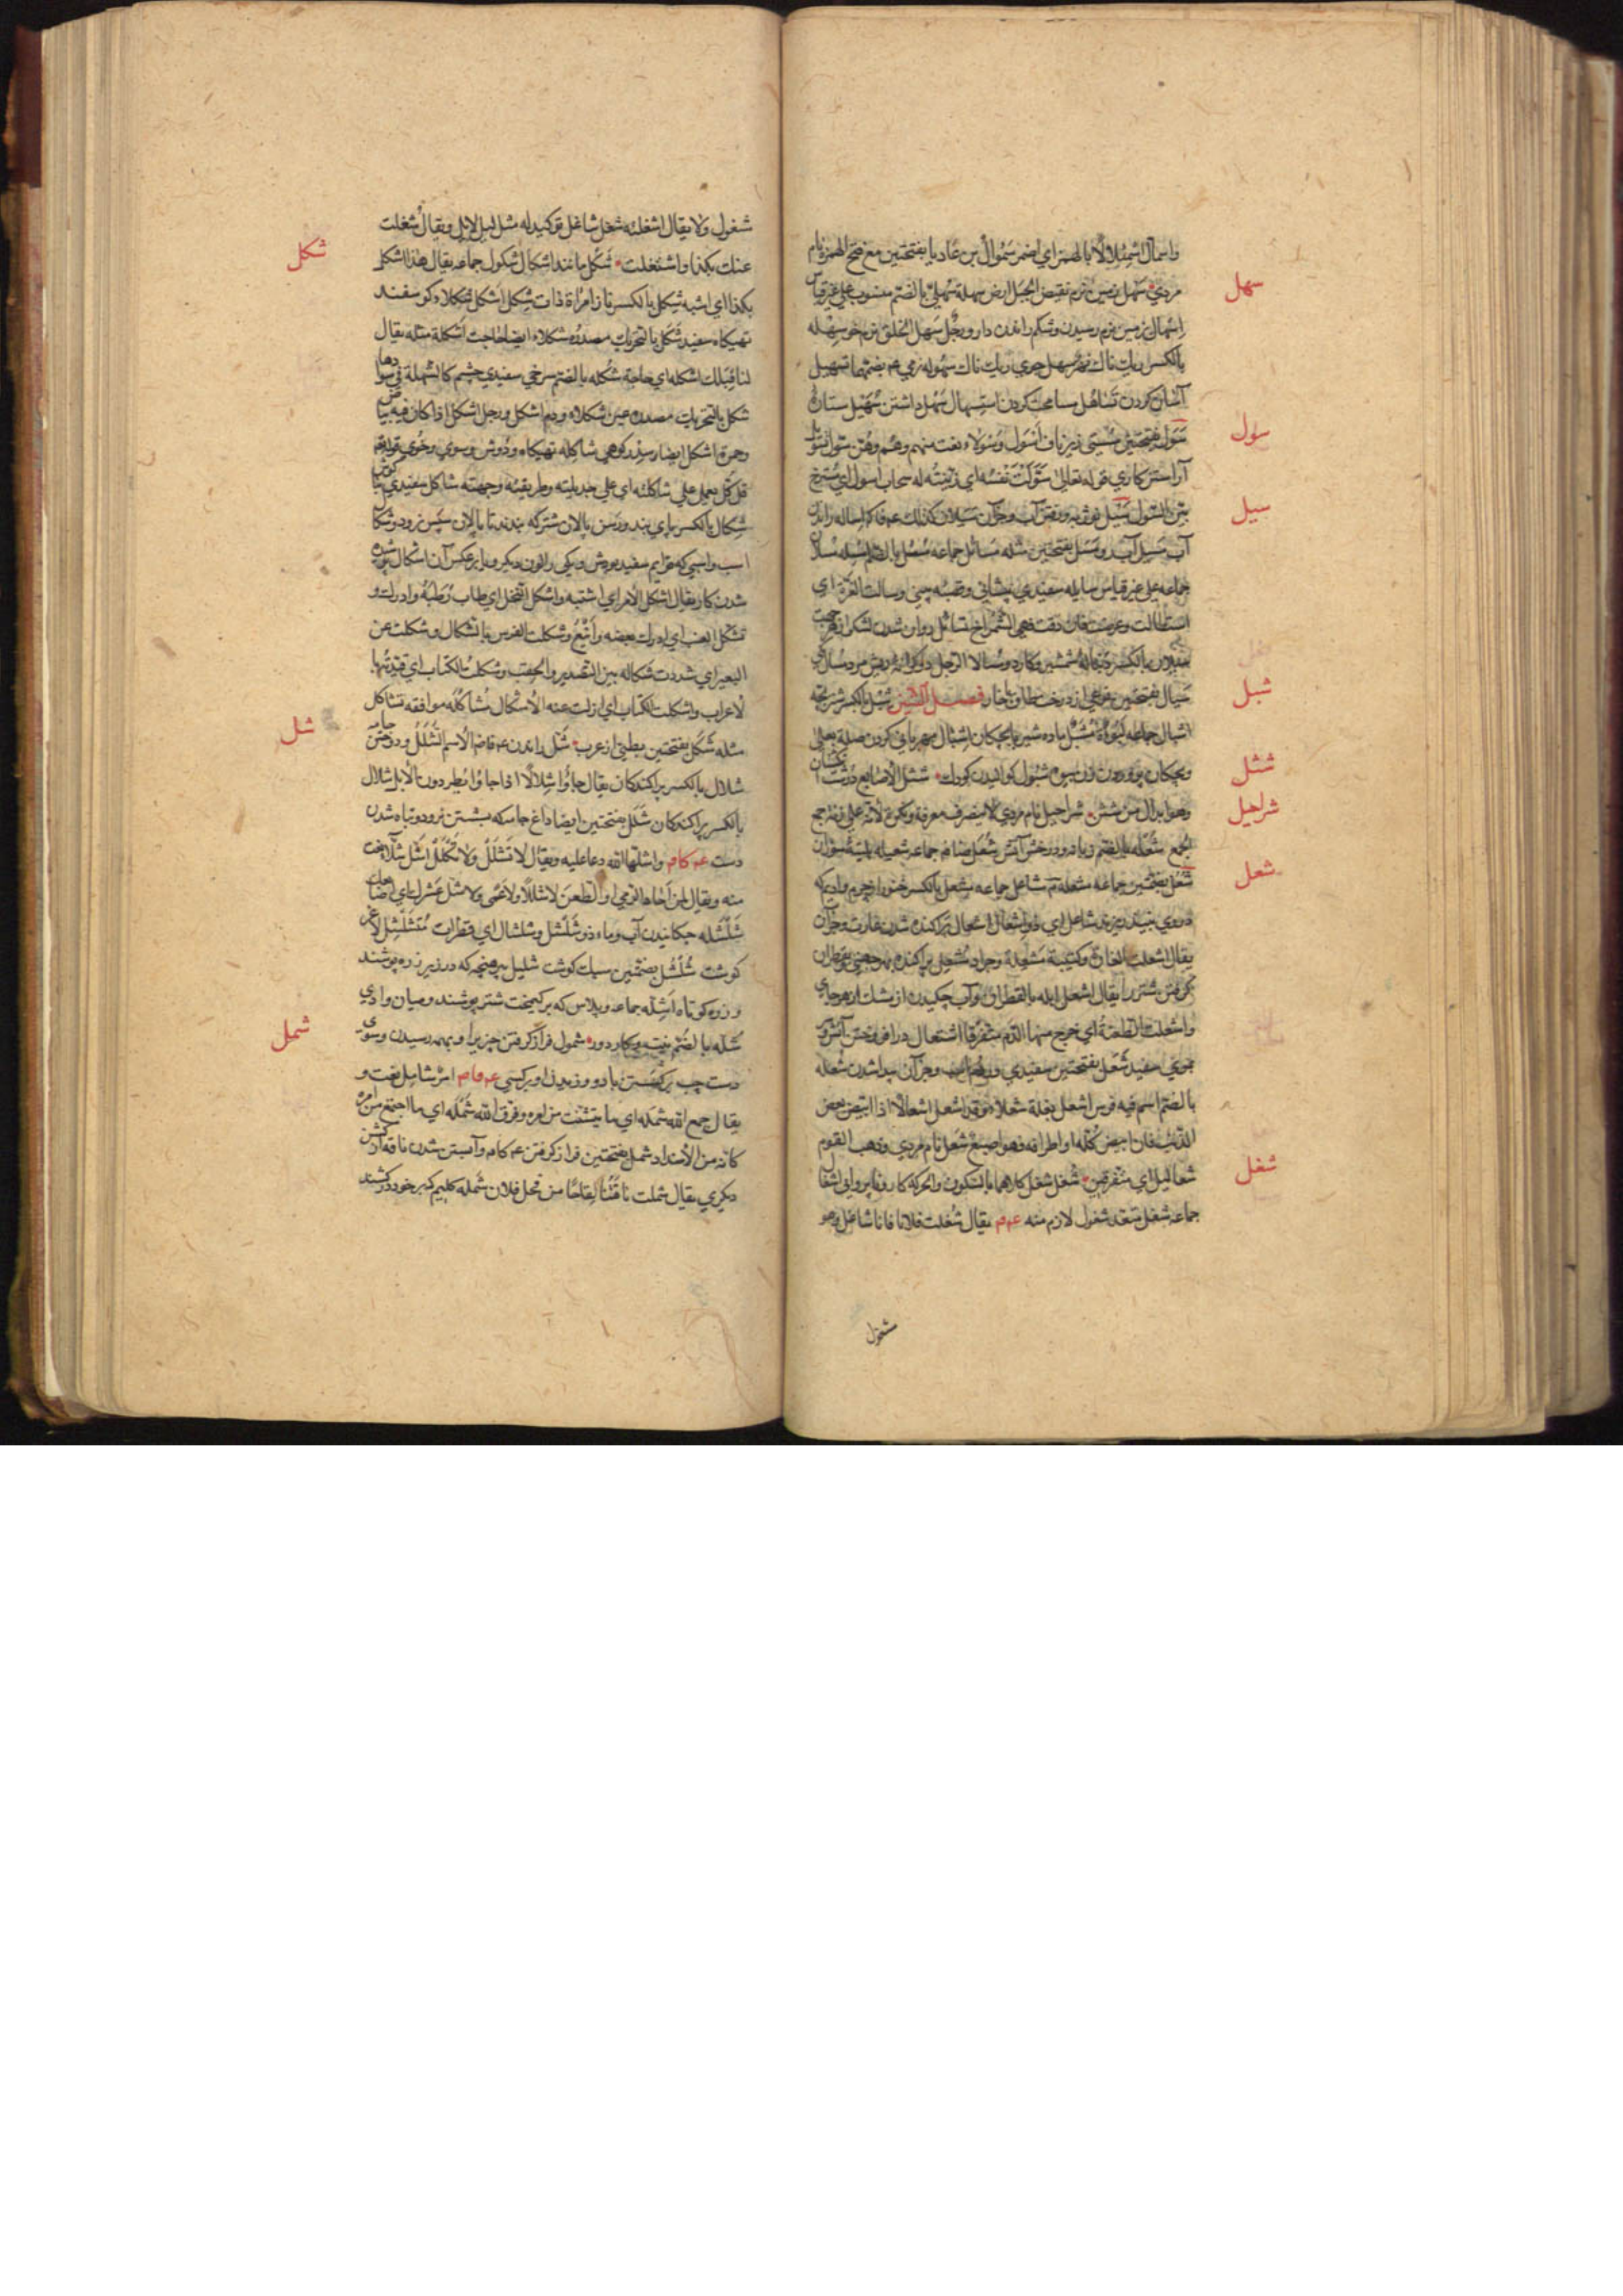 واسمألّ اسمئلالا بالهمز اي ضمر سموأل بن عاديا بفتحتين مع فتح الهمزة نام
سهل
مردي سهل زمين نرم نقيض الجبل ارض سهلة سهليّ بالضم منسوب علي غير قياس
اسهال بزمين نرم رسيدن وشكم راندن دارو ورجل سهل الخلق نرم خو سهله
بالكسر ريك ناك نهر سهل جوي ريك ناك سهوله نرمي بضمهما تسهيل
آسان كردن تساهل مسامحت كردن استسهال سهل داشتن سهيل ستاره
سول
سول بفتحتين سستي زير ناف اسول وسولاء نعت منهم وهن سول تسويل
آراستن كاري قوله تعالي سوّلت نفسه اي زينته له سحاب اسول اي مسترخ
سيل
بيّن السول سيل ورفتن آب وجز آن سيلان كذلك اساله راندن
آب مسيل آب رو مسل بفتحتين مثله مسائل جماعه
جماعه علي غير قياس سايله سفيدي پيشاني وقصبه بيني وسالت الغرة اي
استطالت وعرضت فان دقت فهي الشمراخ تسائل روان شدن لشكر از هر جهت
سيلان بالكسر دنباله شمشير وكارد
شبل
سيال بفتحتين نوعي از درخت طلح خاردار فصل الشين شبل بالكسر شير بچه
اشبال جماعه لبوة مشبل ماده شير با بچكان اشبال مهرباني كردن صلته بعلي
شثل
وبچكان پروردن زن بيوه شبول كواليدن كودك شثل الاصابع درشت انكشتان
شراحيل
وهو ابدال من شثن شراحيل نام مردي لا ينصرف معرفة ونكرة لانه علي زنة جمع
الجمع شعله بالضم زبانه ودرخش آتش شعل ضام جماعه شعيله پليته سوزان
شعل
شعل بضمتين جماعه مشعله مشاعل جماعه مشعل بالكسر خنور از چرم واديم كه
دروي نبيذ ريزند شاعل اي ذو اشعال اشعال پراكنده شدن غارت وجز آن
يقال اشعلت الغارة وكتيبة مشعلة وجراد مشعل پراكنده بهر جهتي وقطران
كرفتن شتر را يقال اشعل ابله بالقطران وآب چكيدن از مشك از هر جاي
واشعلت الطعنة اي خرج منها الدم متفرقا اشتعال در افروختن آتش و
موي سفيد شعل بفتحتين سفيدي دم اسب وجز آن پيدا شدن شعله
بالضم اسم فيه فرس اشعل بغلة شعلاء وقد اشعل اشعالا اذا ابيض بعض
الذنب فان ابيض كله او اطرافه فهو اصبغ شعل نام مردي وذهب القوم
شغل
شعاليل اي متفرقين شغل شغل كارهما بالسكون والحركة كار وناپروايي اشغال
جماعه شغل متعد شغول لازم منه عم يقال شغلت فلانا فانا شاغل وهو
شغول
شغول ولا يقال اشغلته شغل شاغل توكيد له مثل ليل لائل ويقال شغلت
شكل
عنك بكذا واشتغلت شكل مانند اشكال شكول جماعه يقال هذا اشكل
بكذا اي اشبه شكل بالكسر ناز امراة ذات شكل اشكل شكلاء كوسفند
تهيكاه سفيد شكل بالتحريك مصدره شكلاء ايضا حاجت اشكلة مثله يقال
لنا قبلك اشكله اي حاجة شكله بالضم سرخي سفيدي چشم كالشهلة في سوادها
شكل بالتحريك مصدره عين شكلاء ودم اشكل ورجل اشكل اذا كان فيه بياض
وحمرة اشكل ايضا سدر كوهي شاكله تهيكاه وروش وسوي وخوي قوله تع
قل كل يعمل علي شاكلته اي علي جديلته وطريقته وجهته شاكل سفيدي
شكال بالكسر پاي بند ورسن پالان شتر كه بندند تا پالان سپس نرود وشكال
اسب واسبي كه قوايم سفيد بودش ويكي را لون ديكر ويا بر عكس آن اشكال پوشيده
شدن كار يقال اشكل الامر اي اشتبه واشكل النخل اي طاب رطبه وادرك و
تشكل العنب اي ادرك بعضه واينع وشكلت الفرس بالشكال وشكلت عن
البعير اي شددت شكاله بين التصدير والحقب وشكلت الكتاب اي قيدته با
لاعراب واشكلت الكتاب اي ازلت عنه الاشكال مشاكله موافقه تشاكل
شل
مثله شكل بفتحتين بطني از عرب شل راندن عم فاض الاسم الشلل ودوختن جامه
شلال بالكسر پراكندكان يقال جاؤا شلالا اذا جاؤا يطردون الابل شلال
بالكسر پراكندكان شلل بفتحتين ايضا داغ جامه كه بشستن نرود وتباه شدن
دست عم كام واشلها الله دعا عليه ويقال لا تشلل ولا تكلل اشل شلاء نعت
منه ويقال لمن اجاد الرمي او الطعن لا شللا ولا عمي ولا شل عشرك اي اصابعك
شلشله چكانيدن آب وماء ذو شلشل وشلشال اي قطرات متشلشل لاغر
كوشت شلشل بضمتين سبك كوشت شليل پيرهنچه كه در زير زره پوشند
وزره كوتاه اشله جماعه وپلاس كه بر كيمخت شتر پوشند وميان وادي
شمل
شله بالضم نيت وكار دور شمول فراز كرفتن چيز يرا وبهمه رسيدن وسوي
دست چپ بركشتن باد ووزيدن او بر كسي عم فاض امر شامل نعت و
يقال جمع الله شمله اي ما تشتت من امره وفرق الله شمله اي ما اجتمع من امره
كانه من الاضداد شمل بفتحتين فراز كرفتن عم كام وآبستن شدن ناقه از كشن
ديكري يقال شملت ناقتنا لقاحا من فحل فلان شمله كليم كه بر خود در كشند